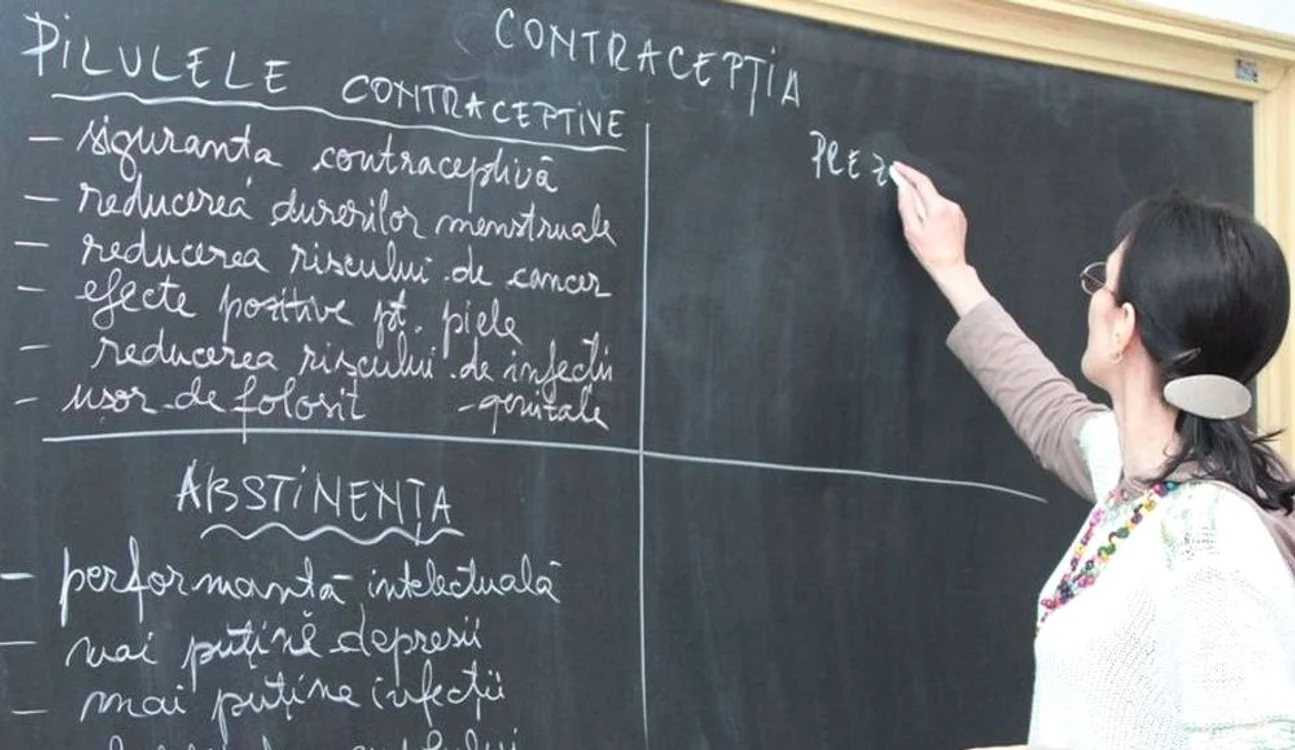 CONTRACEPȚIA
PILULELE CONTRACEPTIVE
- siguranta contraceptivă
- reducerea durerilor menstruale
- reducerea riscului de cancer
- efecte pozitive pt. piele
- reducerea riscului de infectii
- genitale
- ușor de folosit
ABSTINENȚA
- performantă intelectuală
- mai puține depresii
- mai puține infecții
PREZ